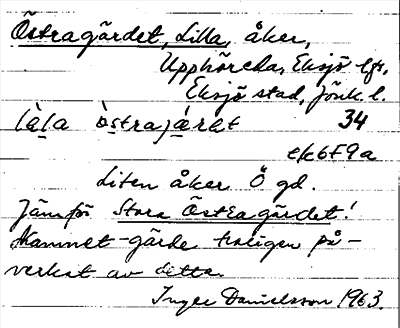 Östragärdet, Lilla, åker,
Upphöreda, Eksjö lfs,
Eksjö stad, Jönk. l.
làla òstrajàrət 34
ek6F9a
Liten åker Ö gd.
Jämför Stora Östragärdet!
Namnet -gärde troligen på-
verkat av detta.
Inger Danielsson 1963.